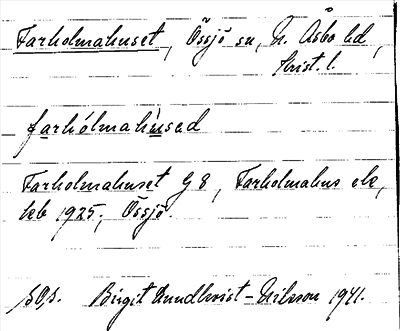 Farholmahuset, Össjö sn, N. Åsbo hd,
Krist. l.
farhólmahùsed
Farholmahuset G 8, Farholmahus ek,
keb 1925, Össjö.
Birgit Lundkvist-Nilsson 1941.